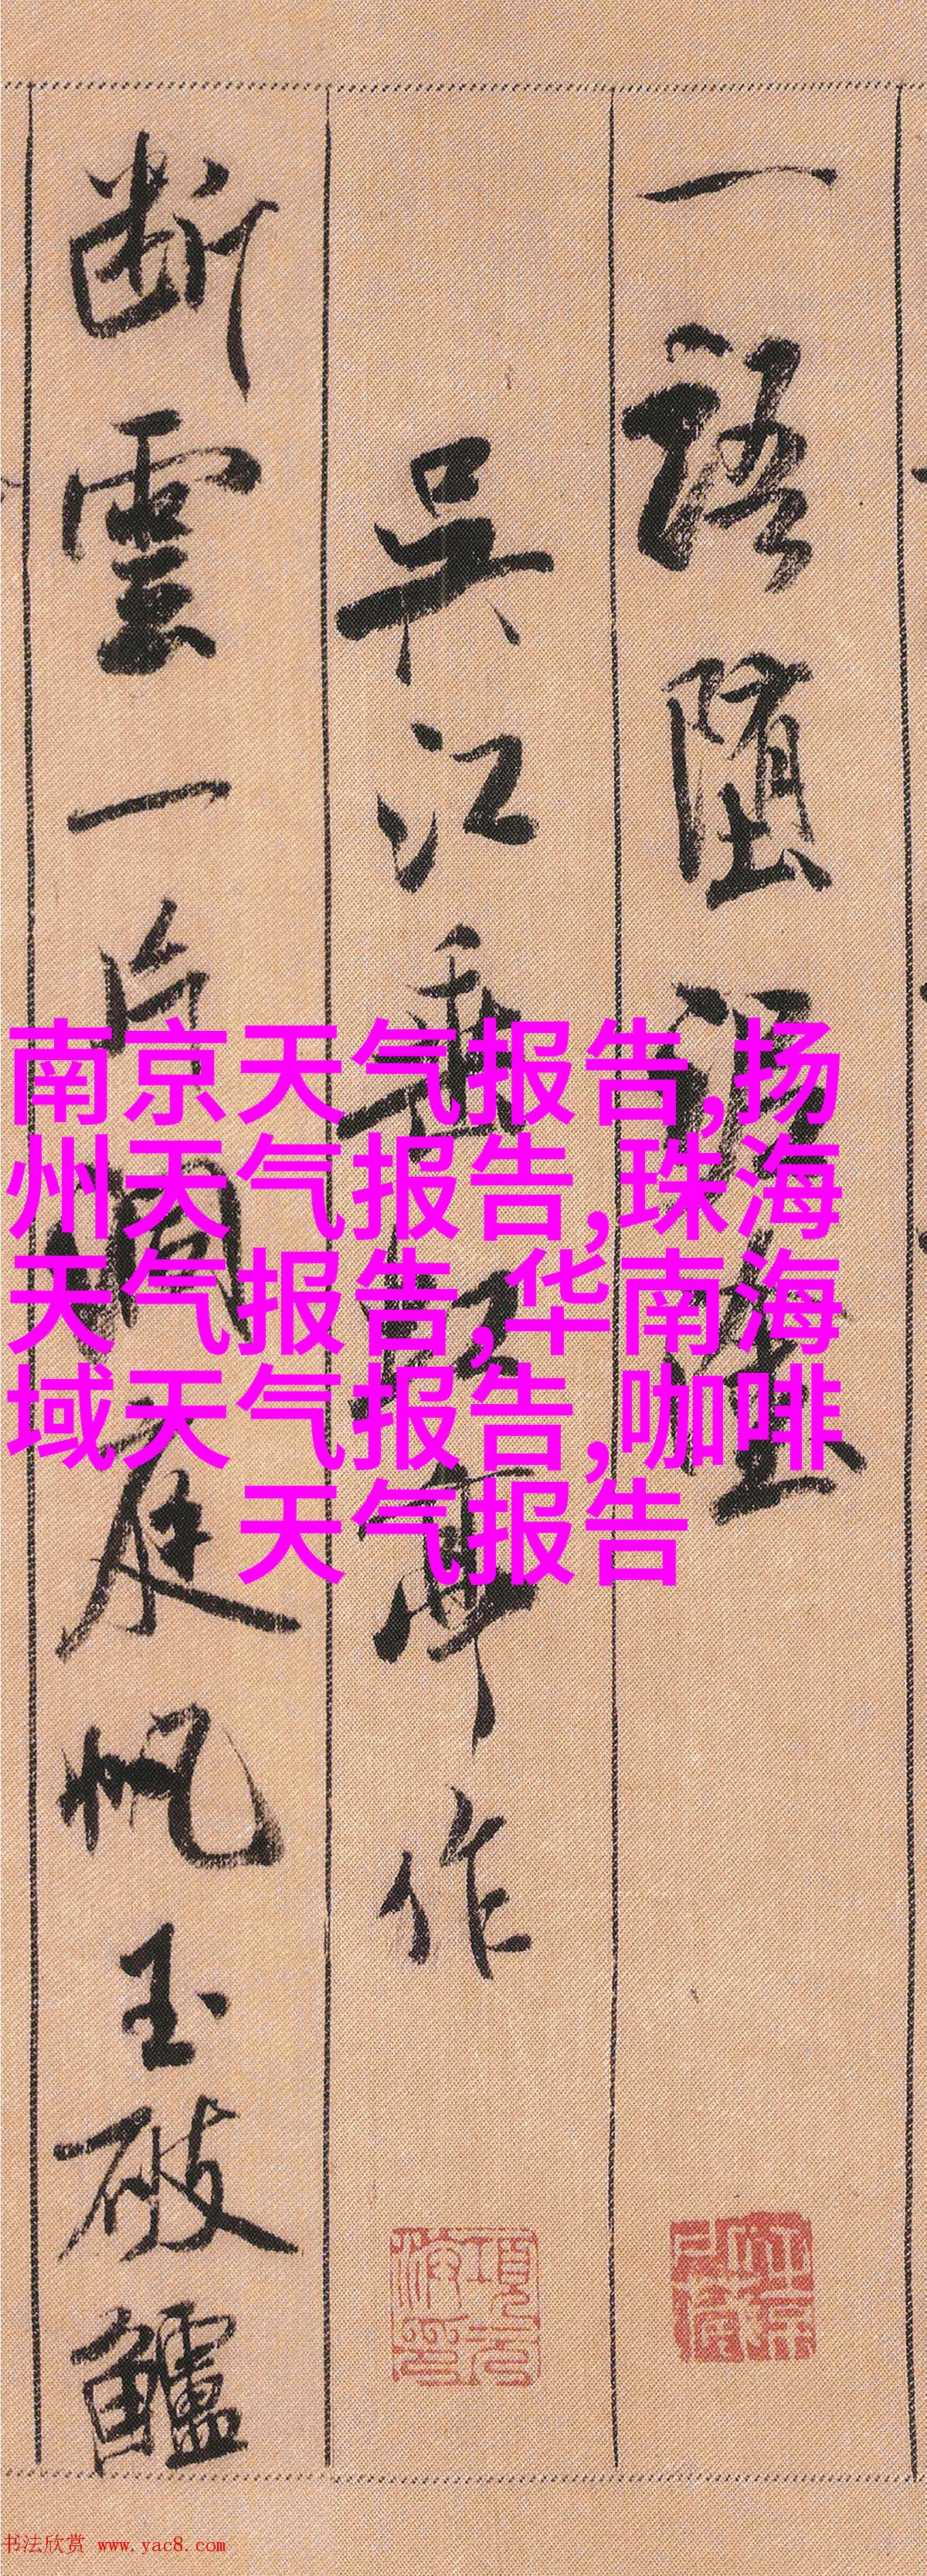 一語墮泥塗
吳江垂虹亭作
断雲一片洞庭帆玉破鱸
南京天气报告,扬
州天气报告,珠海
天气报告,华南海
域天气报告,咖啡
天气报告
书法欣赏 www.yac8.com